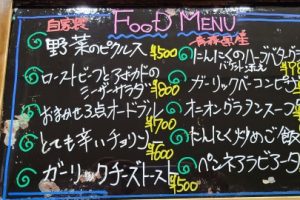 FOOD MENU
自家製
野菜のピクルス ¥500
ローストビーフと
シーザーサラダ ¥800
おまかせ3点オードブル
¥1700
とても辛いチョリソ
¥600
ガーリックチーズトースト
¥500
青森県産
にんにくのハーブバター
バケット添え
ガーリックベーコンピ
オニオングラタンスープ
にんにく炒めご飯
ペンネアラビアータ